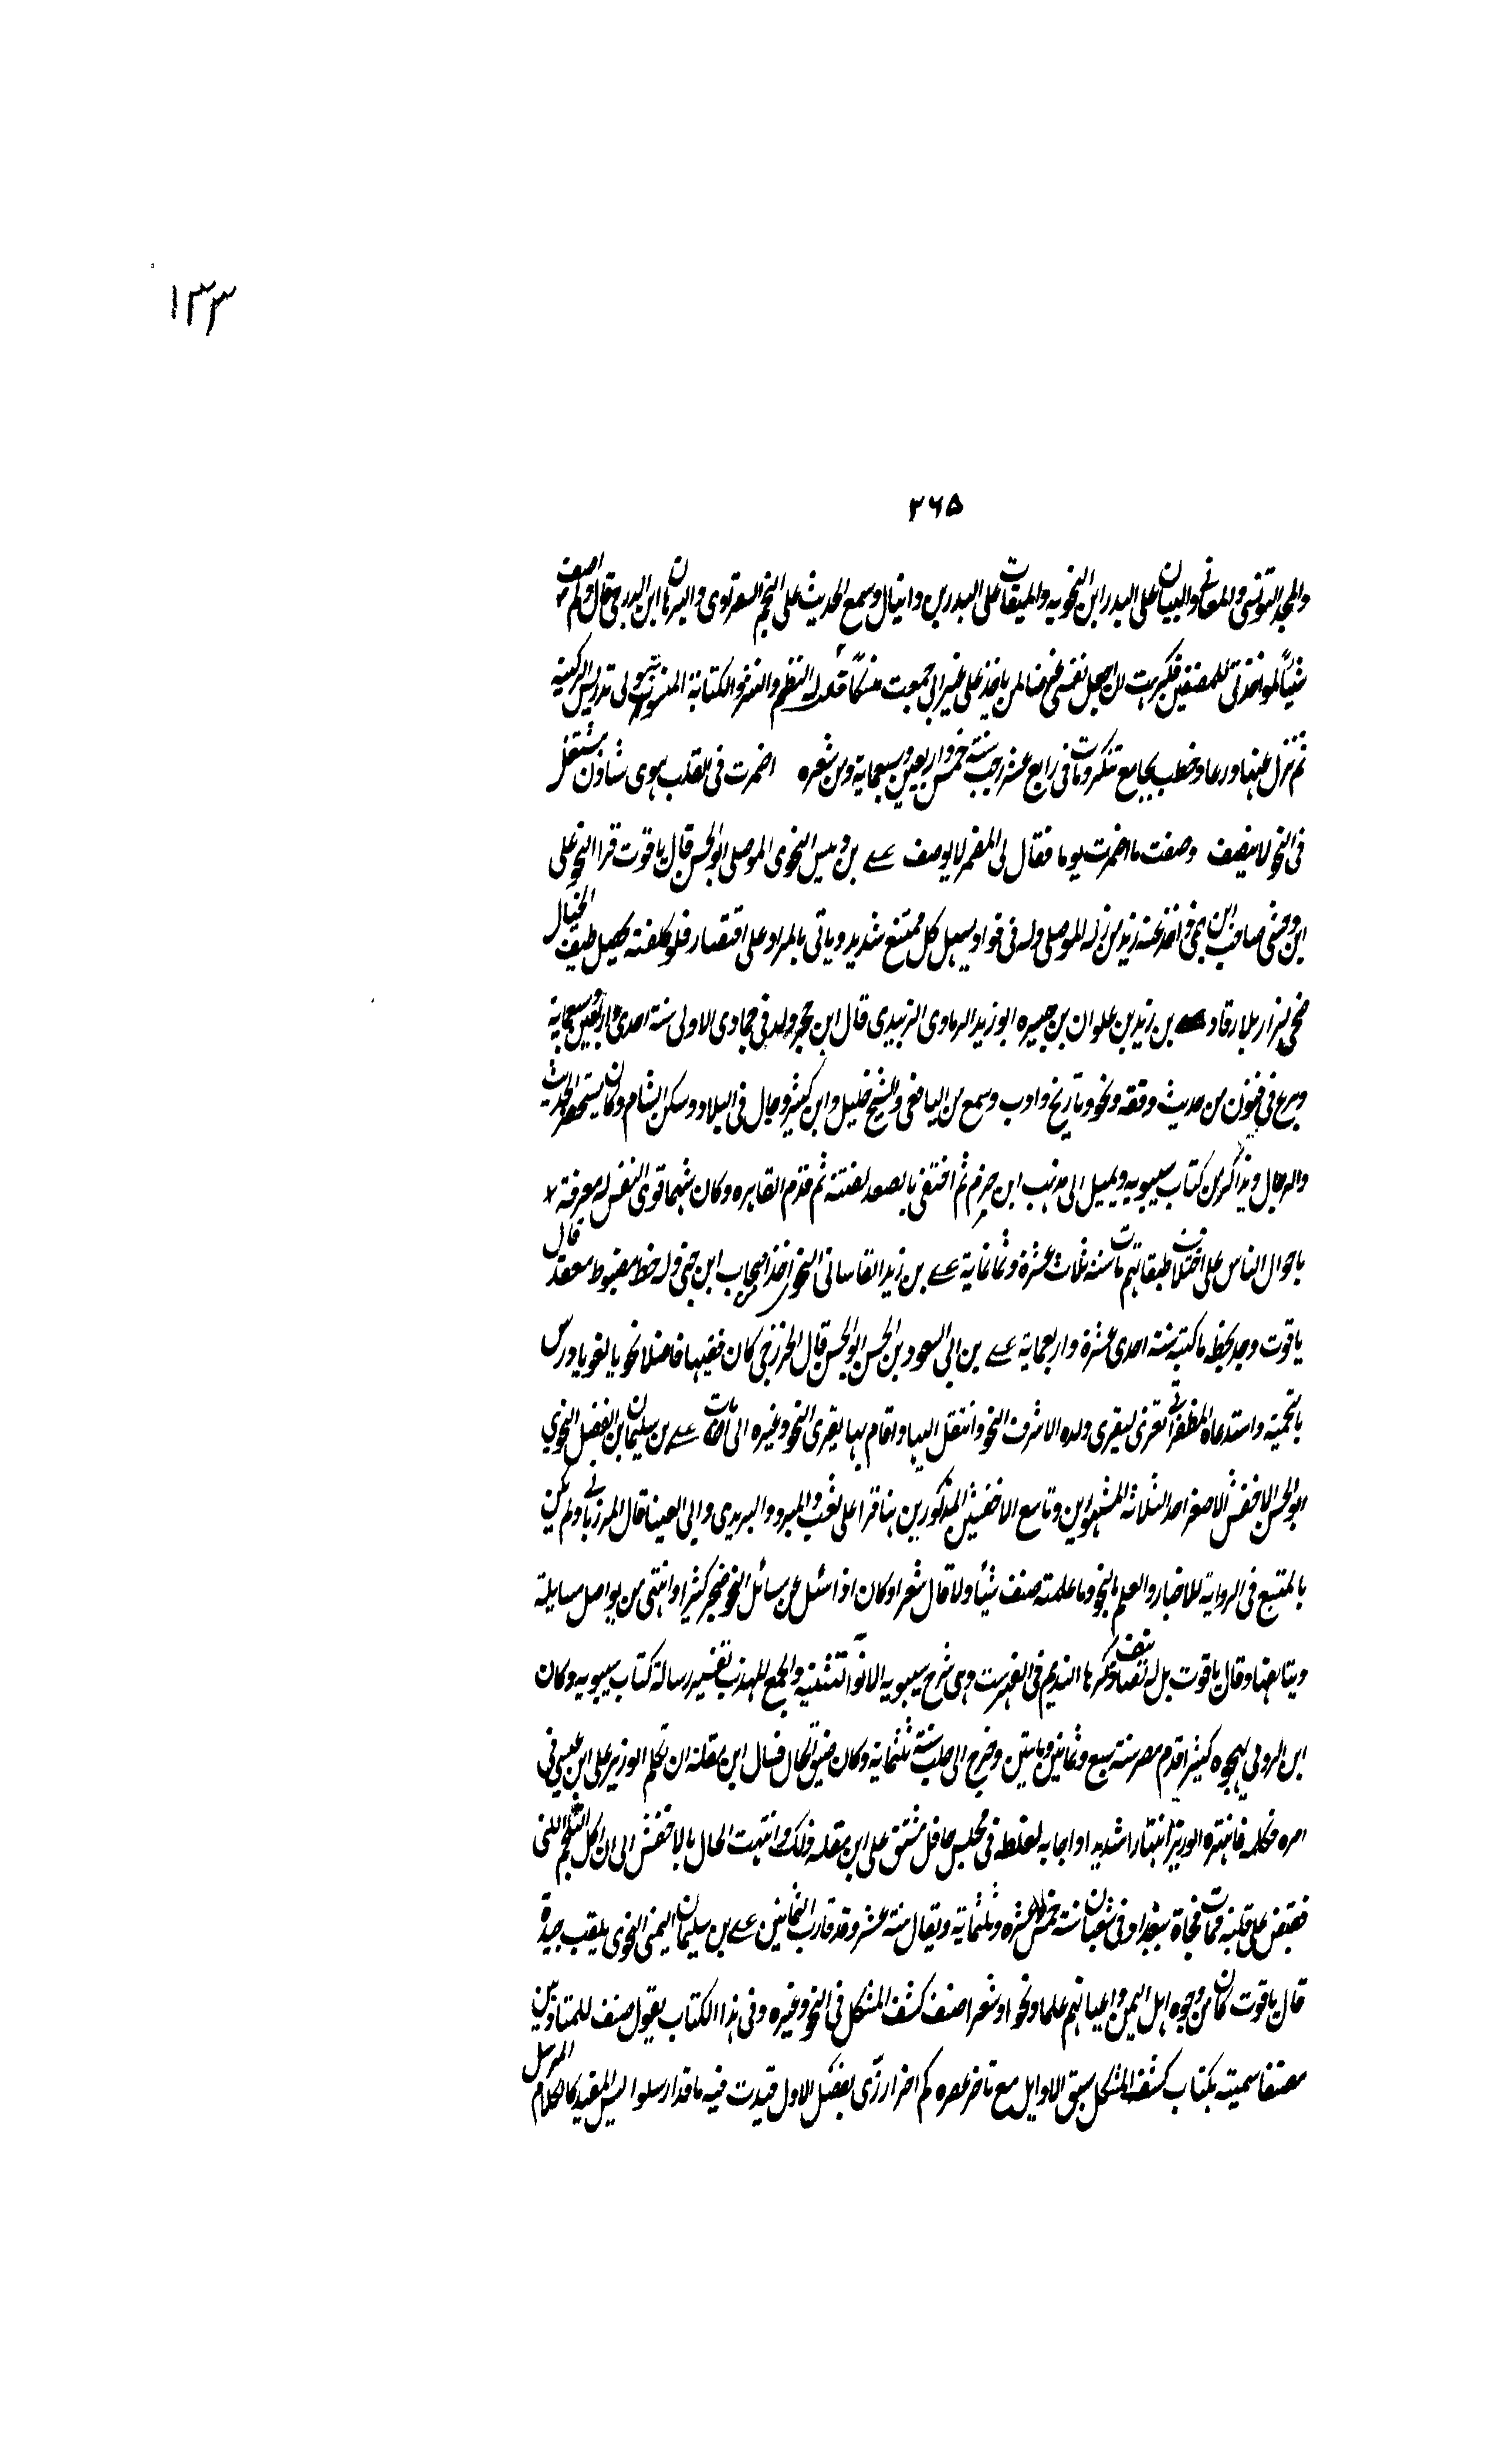 ١٣٣
٢٦٥
والمجد التونسى والمعانى والبيان على البدر ابن النحويه والميقات على البدر بن دانيال وسمع الحديث على النجم الشقراوى والبرهان ابن الدرجى وقال ولم اصنف
شيئا لمواخذتى للمصنفين فكرهت ان اجعل نفسى غرضا لمن ياخذ على غير انى جمعت منسكا قلت له النظم والنثر والكتابة المنسوبة ولى تدريس الركنية
ثم نزل عنها ورعا وخطب بجامع تنكز ومات فى رابع عشر رجب سنة خمس واربعين وسبعماية ومن شعره اضمرت فى القلب هوى شادن مشتغل
فى النحو لا ينصف وصفت ما اضمرت يوما فقال لى المضمر لا يوصف على بن دبيس النحوى الموصلى ابو الحسن قال ياقوت قرا النحو على
ابن وحشى صاحب ابن جنى واخذ عنه زيد مرزكه الموصلى وله فى قواد يسهل كل ممتنع شديد وياتى بالمراد على اقتصاد فلو كلفته تحصيل طيف الخيال
ضحى لزار بلا رقاد على بن زيد بن علوان بن صبره ابو زيد الردماوى الزبيدى قال ابن حجر ولد فى جمادى الاولى سنة احدى واربعين وسبعماية
وبرع فى فنون من حديث وفقه ونحو وتاريخ وادب وسمع من اليافعى والشيخ خليل وابن كثير وجال فى البلاد وسكن الشام وكان يستحضر الحديث
والرجال ويذاكر من كتاب سيبويه ويميل الى مذهب ابن حزم ثم اختفى بالصعيد لفتنة ثم قدم القاهره وكان شهما قوى النفس له معرفة
باحوال الناس على اختلاف طبقاتهم مات سنة ثلاث عشرة وثمانماية على بن زيد القاسانى النحوى اخذ اصحاب ابن جنى وله خط مضبوط معقد قال
ياقوت وجد بخطه ما كتبه سنة احدى عشرة واربعماية على بن ابى السعود بن الحسن ابو الحسن قال الخزرجى كان فقيها فاضلا نحويا لغويا ودرس
بالنجمية واستدعاه المظفر الى تعز لى ليقرى ولده الاشرف النحو وانتقل اليها واقام بها يقرى النحو وغيره الى ان مات على بن سليمان بن الفضل النحوى
ابو الحسن الاخفش الاصغر احد الثلاثة المشهورين وتاسع الاخفشين المذكورين هنا قرا على ثعلب والمبرد واليزيدى وابى العينا قال المرزبانى ولم يكن
بالمتسع فى الرواية للاخبار والعلم بالنحو وما علمته صنف شيئا ولا قال شعرا وكان اذا سئل عن مسائل النحو ضجر كثيرا وانتهى من يواصل مسايلة
ويتابعها وقال ياقوت بل له تصانيف ذكرها النديم فى الفهرست وهى شرح سيبويه الانوا التثنيه والجمع المهذب تفسير رسالة كتاب سيبويه وكان
ابن الرومى يهجوه كثيرا قدم مصر سنة سبع وثمانين ومايتين وخرج الى حلب سنة ثلثماية وكان ضيق الحال فسال ابن مقلة ان يكلم الوزير على ابن عيسى فى
امره فكلمه فانتهره الوزير انتهارا شديدا واجابه بغلظه فى مجلس حافل فشق على ابن مقله ذلك وانتهت الحال بالاخفش الى ان اكل السلجم النى
فقبض على قلبه فمات فجاة ببغداد فى شعبان سنة خمس عشره وثلثماية ويقال سنة عشر وقد قارب الثمانين على بن سليمان اليمنى النحوى يلقب حيدة
قال ياقوت كان من وجوه اهل اليمن واعيانهم علما ونحوا وشعرا صنف كشف المشكل فى النحو وغيره وفى هذا الكتاب يقول صنف للمتادبين
مصنفا سميته بكتاب كشف المشكل سبق الاوايل مع تاخر عصره كم اخر ازرى بفضل الاول قيدت فيه ما قد ارسلوا ليس المقيد كالكلام المرسل